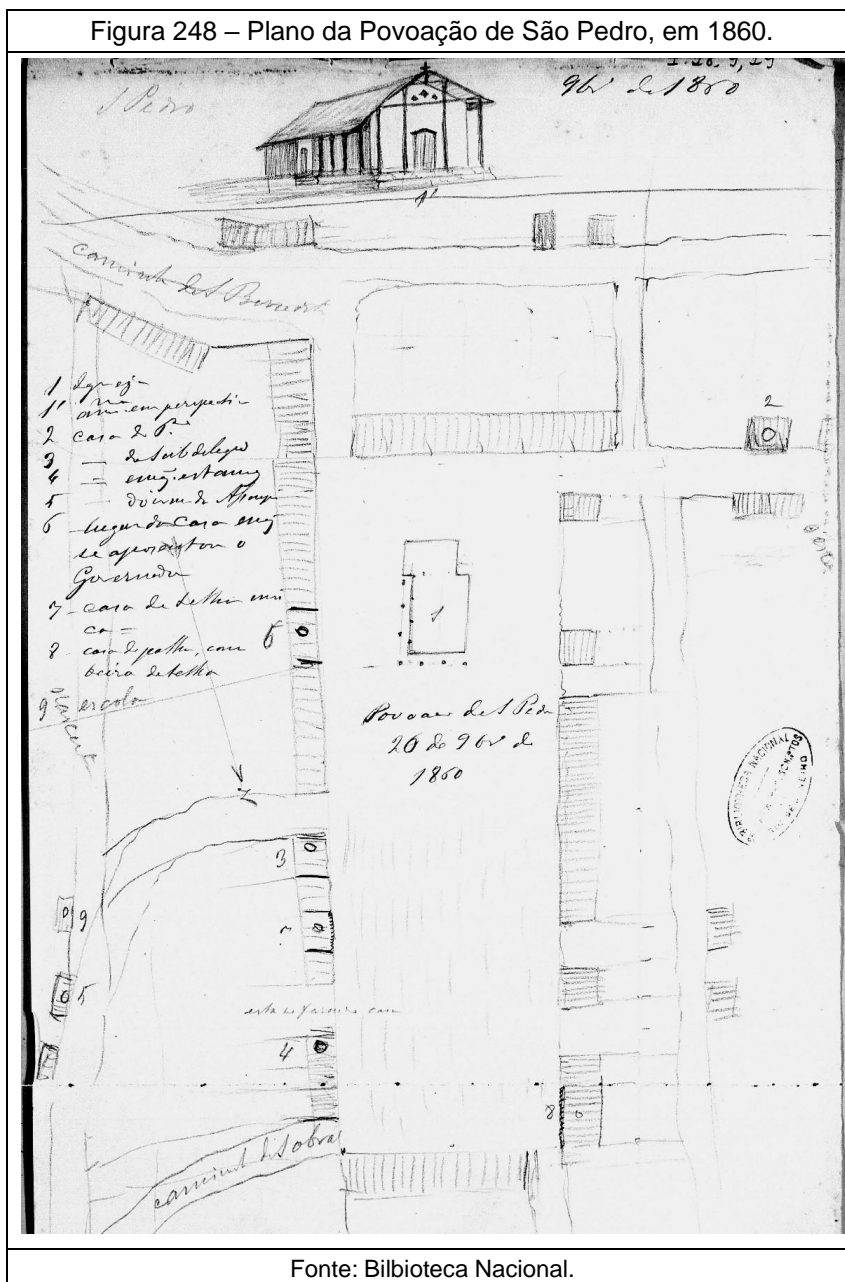 Figura 248 – Plano da Povoação de São Pedro, em 1860.
S Pedro
9br de 1860
1'
caminho de S Benedito
1 Igreja
1' em perspectiva
2 casa do Pe
3 — do subdelegado
4 =
5 -
6 - lugar da casa em q
se aposentou o
Governador
7 - casa de telha uni
ca =
8 casa de palha, com
beira de telha
9 escola
Nascente
2
oeste
6
1
Povoação de S Pedro
26 de 9br de
1860
BIBLIOTHECA NACIONAL
3
9
7
5
4
8
caminho de Sobral
Fonte: Bilbioteca Nacional.